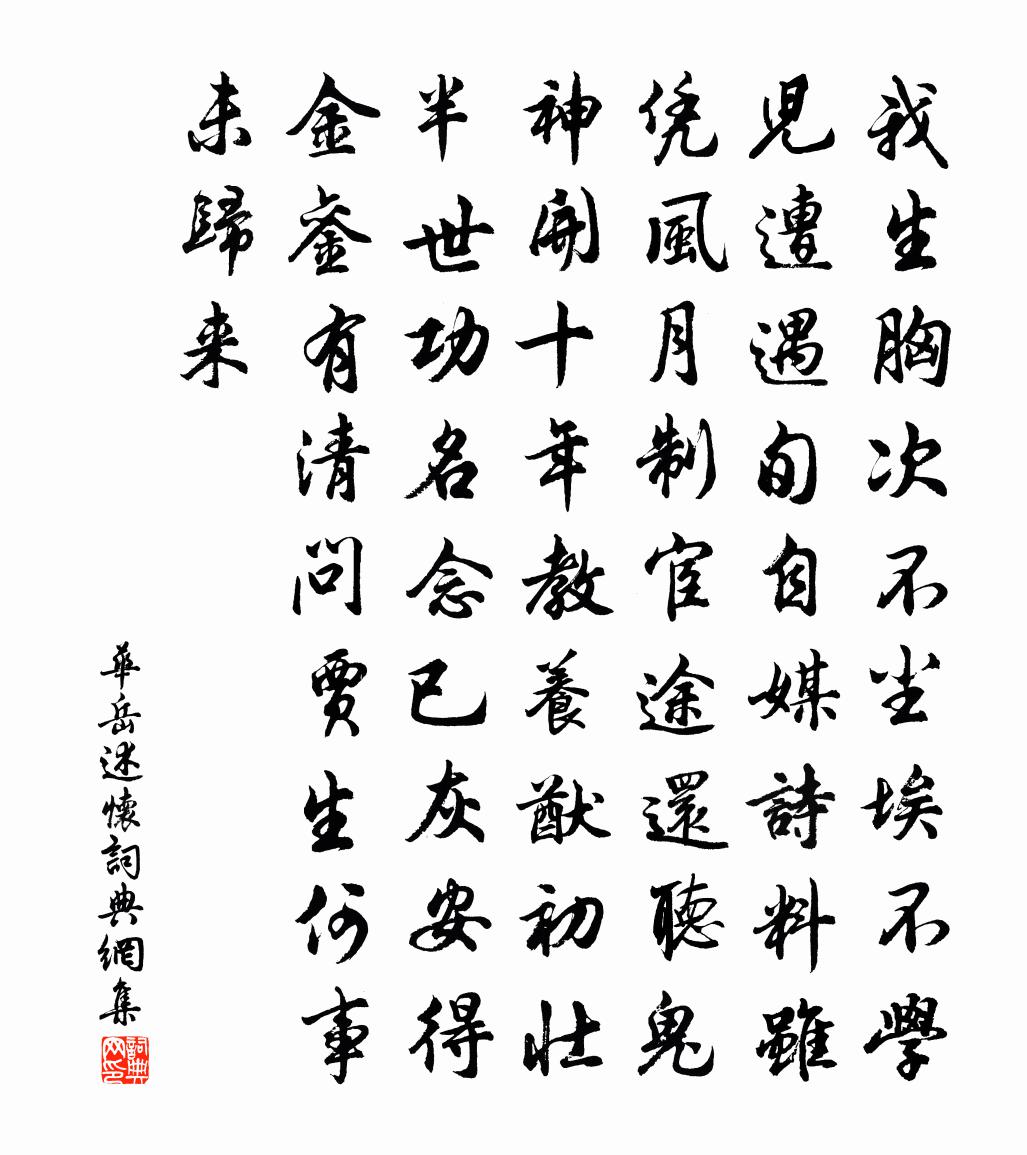 我生胸次不尘埃不學
児遭遇旬自媒詩料雖
凭風月制宦途還聽鬼
神開十年教養猷初壮
半世功名念已灰安得
金銮有清問賈生何事
未歸来
華岳述懷詞典網集
詞典网印